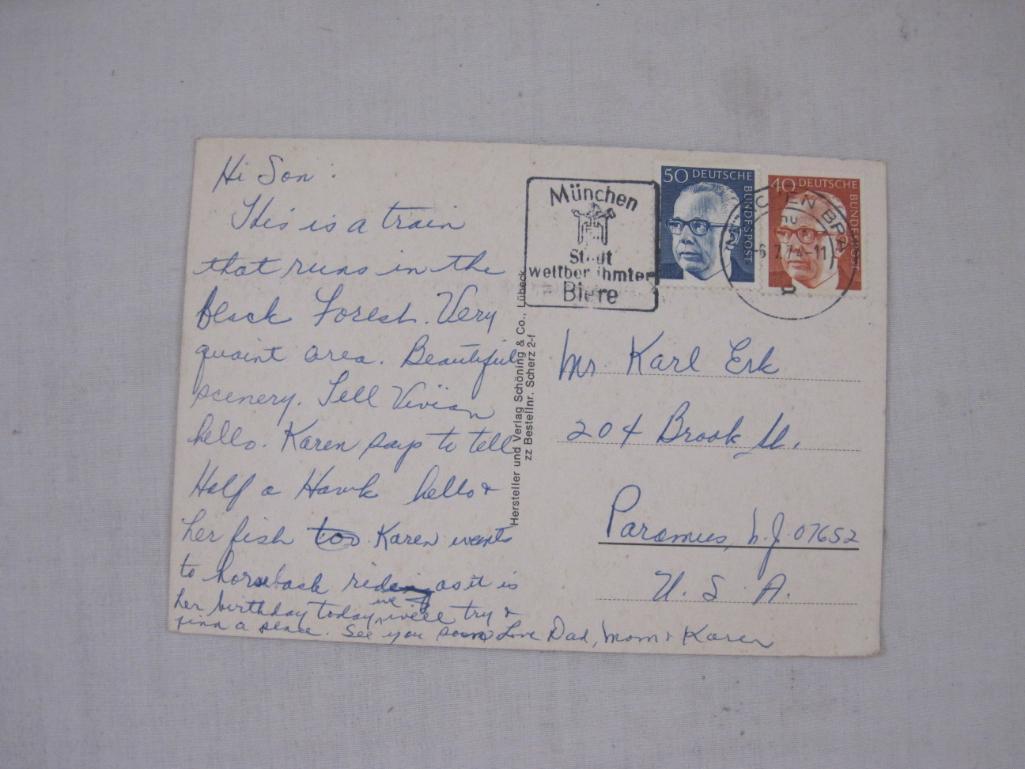 Hi Son.
This is a train
that runs in the
black Forest. Very
quaint area. Beautiful
scenery. Tell Vivian
hello. Karen says to tell
Half a Hawk hello &
her fish too. Karen wants
to horseback riding as it is
her birthday today, we will try &
find a place. See you soon Love Dad, Mom & Karen
Hersteller und Verlag Schöning & Co., Lübeck
zz Bestellnr. Scherz 2-f
München
Stadt
weltberühmter
Biere
50 DEUTSCHE
BUNDESPOST
40 DEUTSCHE
BUNDESPOST
MÜNCHEN
-6.7.74-11
Mr. Karl Erk
204 Brook
Paramus, N.J. 07652
U. S. A.